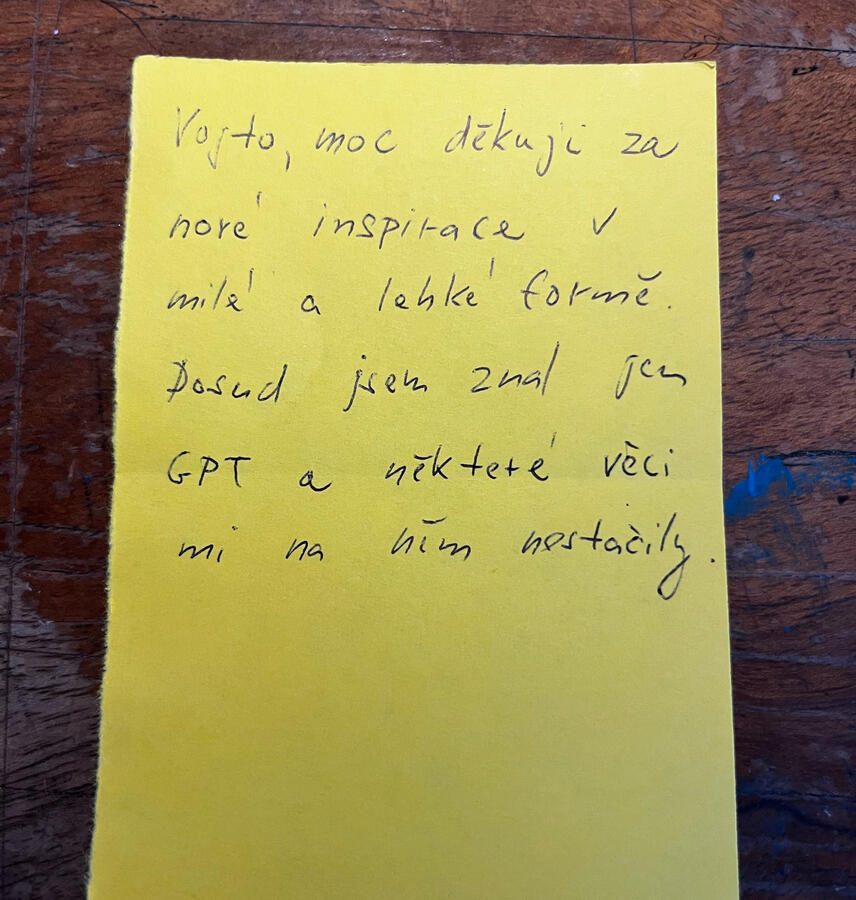 Vojto, moc děkuji za
nové inspirace v
milé a lehké formě.
Dosud jsem znal jen
GPT a některé věci
mi na něm nestačily.